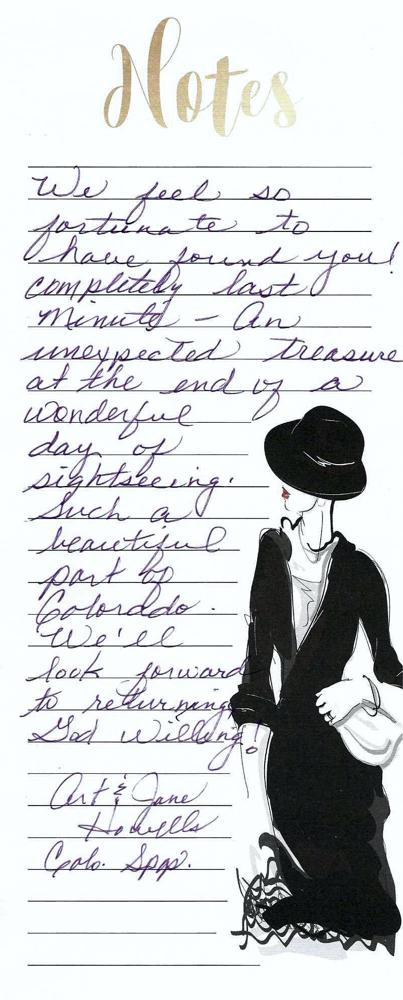 Notes
We feel so
fortunate to
have found you!
completely last
minute - An
unexpected treasure
at the end of a
wonderful
day of
sightseeing.
Such a
beautiful
part of
Colorado.
We'll
look forward
to returning,
God Willing!
Art & Jane
Howells
Colo. Spgs.